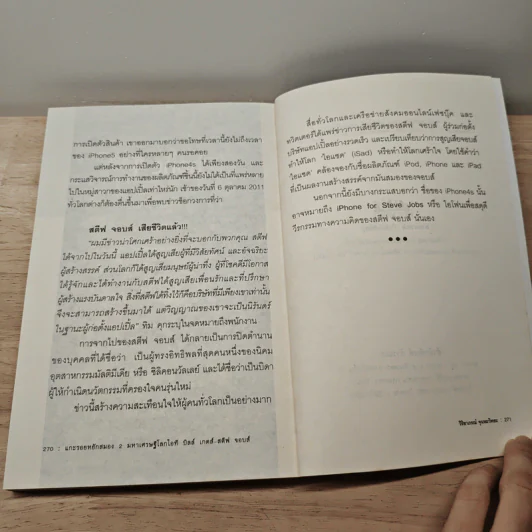 การเปิดตัวสินค้า เขาออกมาบอกว่าขอโทษที่เวลานี้ยังไม่ถึงเวลา
ของ iPhone5 อย่างที่ใครหลายๆ คนรอคอย
แต่หลังจากการเปิดตัว iPhone4s ได้เพียงสองวัน และ
กระแสวิจารณ์การทำงานของผลิตภัณฑ์ชิ้นนี้ยังไม่ได้เป็นที่แพร่หลาย
ไปในหมู่สาวกของแอปเปิ้ลเท่าไหร่นัก เช้าของวันที่ 6 ตุลาคม 2011
ทั่วโลกต่างก็ต้องตื่นขึ้นมาเพื่อพบข่าวช็อกวงการที่ว่า
สตีฟ จอบส์ เสียชีวิตแล้ว!!!
"ผมมีข่าวน่าโศกเศร้าอย่างยิ่งที่จะบอกกับพวกคุณ สตีฟ
ได้จากไปในวันนี้ แอปเปิ้ลได้สูญเสียผู้ที่มีวิสัยทัศน์ และอัจฉริยะ
ผู้สร้างสรรค์ ส่วนโลกก็ได้สูญเสียมนุษย์ผู้น่าทึ่ง ผู้ที่โชคดีมีโอกาส
ได้รู้จักและได้ทำงานกับสตีฟได้สูญเสียเพื่อนรักและที่ปรึกษา
ผู้สร้างแรงบันดาลใจ สิ่งที่สตีฟได้ทิ้งไว้ก็คือบริษัทที่มีเพียงเขาเท่านั้น
จึงจะสามารถสร้างขึ้นมาได้ แต่วิญญาณของเขาจะเป็นนิรันดร์
ในฐานะผู้ก่อตั้งแอปเปิ้ล" ทิม คุกระบุในจดหมายถึงพนักงาน
การจากไปของสตีฟ จอบส์ ได้กลายเป็นการปิดตำนาน
ของบุคคลที่ได้ชื่อว่า เป็นผู้ทรงอิทธิพลที่สุดคนหนึ่งของนิคม
อุตสาหกรรมมัลติมีเดีย หรือ ซิลิคอนวัลเลย์ และได้ชื่อว่าเป็นบิดา
ผู้ให้กำเนิดนวัตกรรมที่ครองใจคนรุ่นใหม่
ข่าวนี้สร้างความสะเทือนใจให้ผู้คนทั่วโลกเป็นอย่างมาก
270 : แกะรอยหยักสมอง 2 มหาเศรษฐีโลกไอที บิลล์ เกตส์-สตีฟ จอบส์
สื่อทั่วโลกและเครือข่ายสังคมออนไลน์เฟซบุ๊ค และ
ทวิตเตอร์ได้แพร่ข่าวการเสียชีวิตของสตีฟ จอบส์ ผู้ร่วมก่อตั้ง
บริษัทแอปเปิ้ลอย่างรวดเร็ว และเปรียบเทียบว่าการสูญเสียจอบส์
ทำให้โลก 'ไอแซด' (iSad) หรือทำให้โลกเศร้าใจ โดยใช้คำว่า
'ไอแซด' คล้องจองกับชื่อผลิตภัณฑ์ iPod, iPhone และ iPad
ที่เป็นผลงานสร้างสรรค์จากมันสมองของจอบส์
นอกจากนี้ยังมีบางกระแสบอกว่า ชื่อของ iPhone4s นั้น
อาจหมายถึง iPhone for Steve Jobs หรือ ไอโฟนเพื่อสดุดี
วีรกรรมทางความคิดของสตีฟ จอบส์ นั่นเอง
: 271